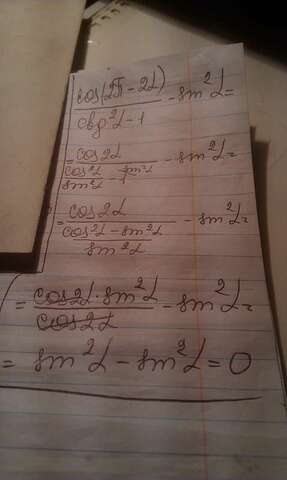 cos(2π - 2α) / ctg²α - 1 - sin²α =
= cos2α / cos²α/sin²α - 1 sin²α - sin²α =
= cos2α / cos²α - sin²α / sin²α - sin²α =
= cos2α · sin²α / cos2α - sin²α =
= sin²α - sin²α = 0